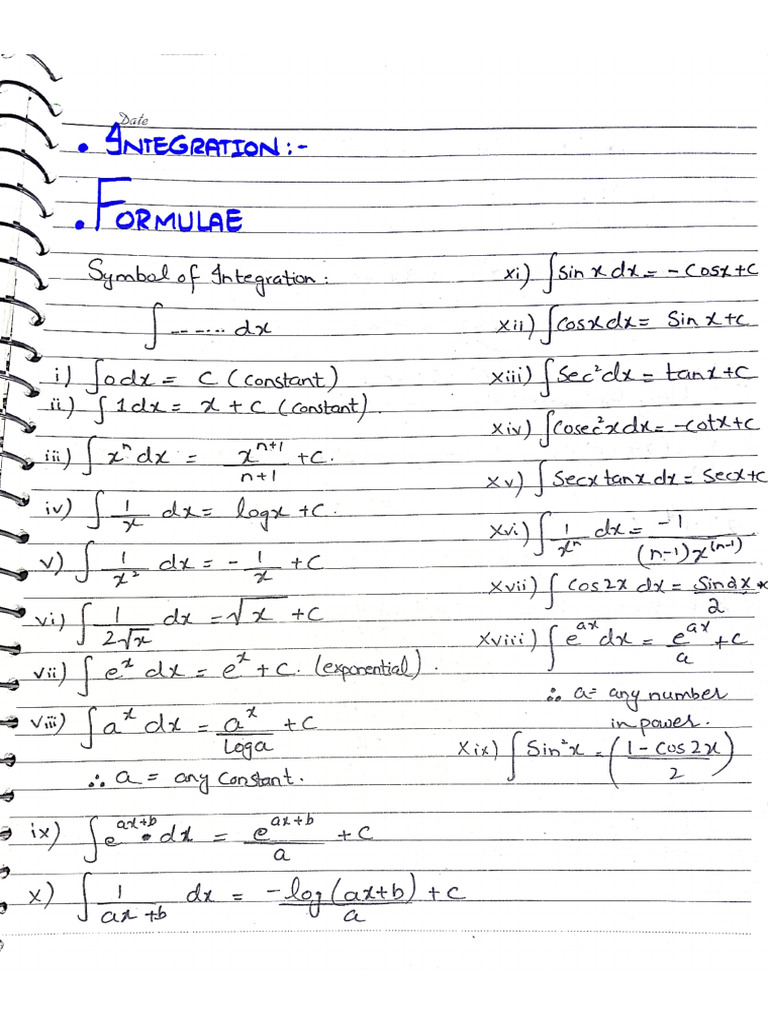 Date
• INTEGRATION:-
• FORMULAE
Symbol of Integration:
∫ ------- dx
i) ∫0dx = C (constant)
ii) ∫1dx = x + C (constant).
iii) ∫xⁿ dx = xⁿ⁺¹/n+1 + C.
iv) ∫1/x dx = logx + C.
v) ∫1/x² dx = -1/x + C
vi) ∫1/2√x dx = √x + C
vii) ∫eˣ dx = eˣ + C. (exponential).
viii) ∫aˣ dx = aˣ/loga + C
∴ a = any constant.
ix) ∫e^ax+b • dx = e^ax+b/a + C
x) ∫1/ax+b dx = -log(ax+b)/a + C
xi) ∫sin x dx = -Cosx+C
xii) ∫cosx dx = Sinx+C
xiii) ∫Sec²dx = tanx+C
xiv) ∫Cosec²x dx = -cotx+C
xv) ∫Secx tanx dx = Secx+C
xvi) ∫1/xⁿ dx = -1/(n-1)x^(n-1)
xvii) ∫cos2x dx = Sin2x/2
xviii) ∫e^ax dx = e^ax/a + C
∴ a = any number
in power.
xix) ∫Sin²x = (1-cos2x/2)